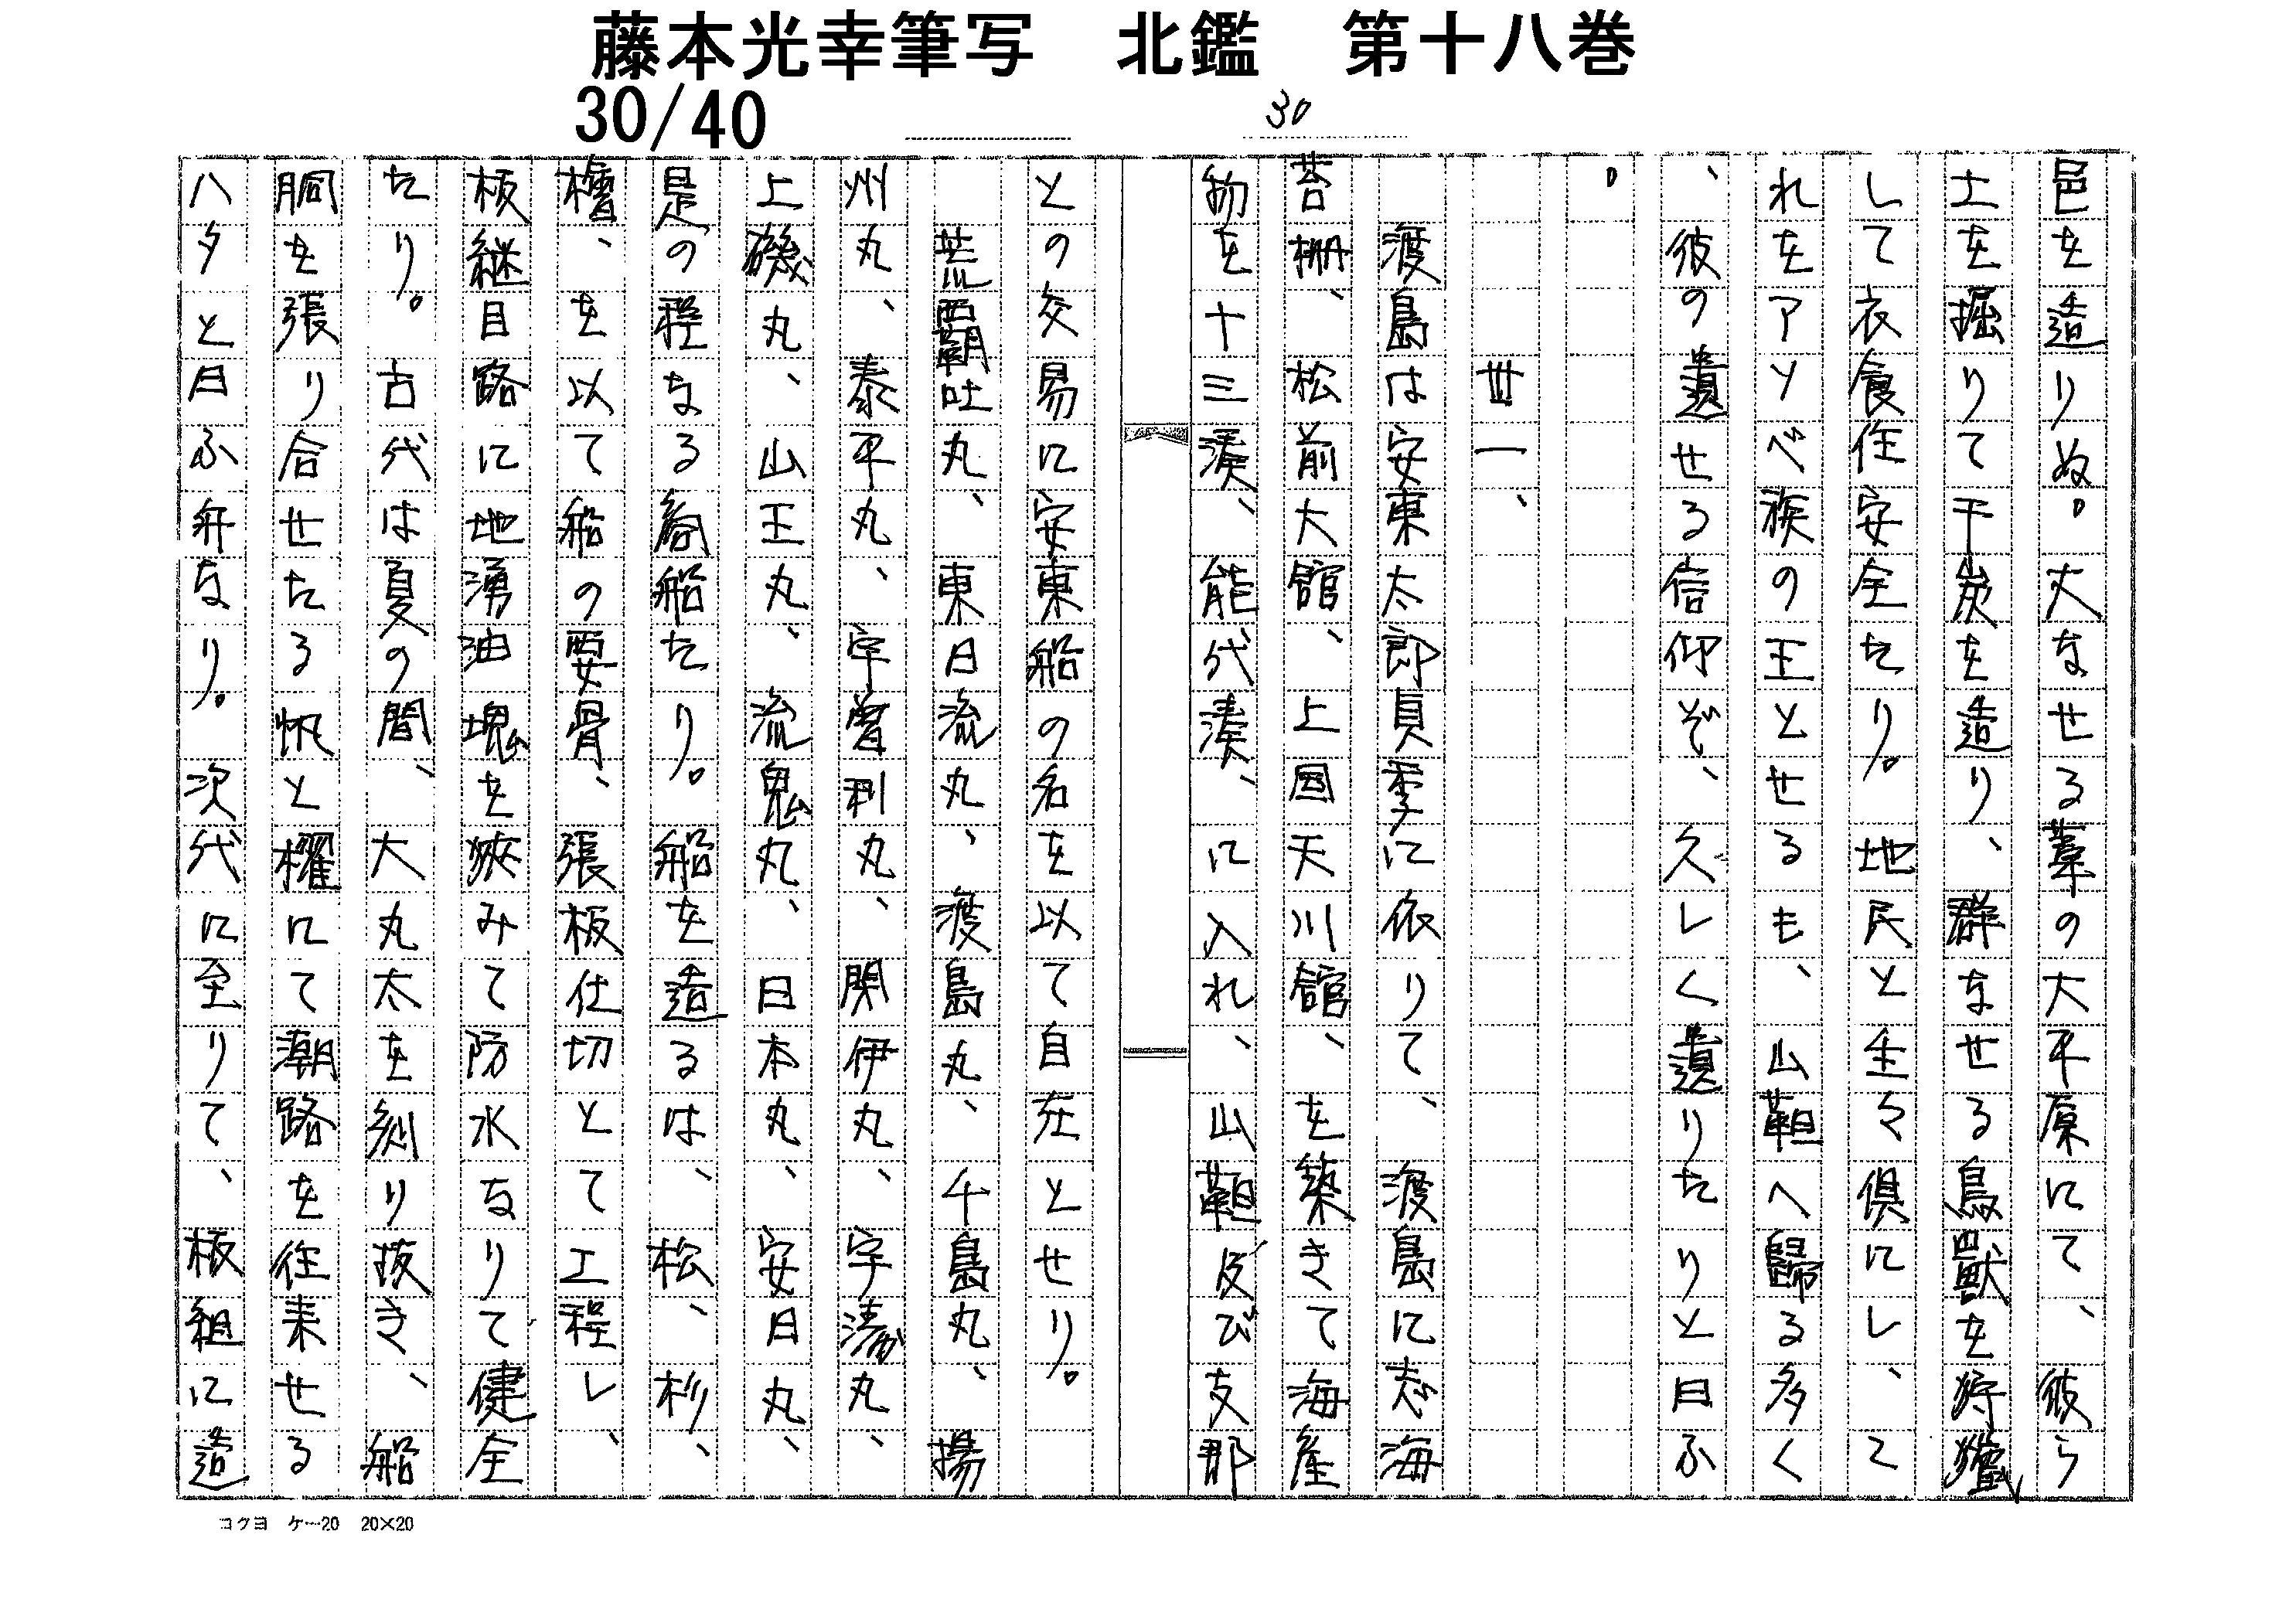 藤本光幸筆写　北鑑　第十八巻
30/40
30
邑を造りぬ。大なせる葦の大平原にて、彼ら
土を掘りて干炭を造り、群なせる鳥獣を狩猟
して衣食住安全たり。地民と生々倶にし、て
れをアソベ族の王とせるも、山靼へ歸る多く
、彼の遺せる信仰ぞ、久しく遺りたりと曰ふ
。
丗一、
渡島は安東太郎貝季に依りて、渡島に志海
苔柵、松前大館、上国天川館、を築きて海産
物を十三湊、能代湊、に入れ、山靼及び支那
との交易に安東船の名を以て自在とせり。
荒覇吐丸、東日流丸、渡島丸、千島丸、揚
州丸、泰平丸、宇曽利丸、関伊丸、宇湊丸、
上磯丸、山王丸、流鬼丸、日本丸、安日丸、
是の程なる商船たり。船を造るは、松、杉、
檜、を以て船の要骨、張板仕切として工程し、
板継目路に地湧油塊を挾みて防水なりて健全
たり。古代は夏の間、大丸太を刻り抜き、船
胴を張り合せたる帆と櫂にて潮路を往来せる
ハタと曰ふ舟なり。次代に至りて、板組に造
コクヨ　ケー20　20×20